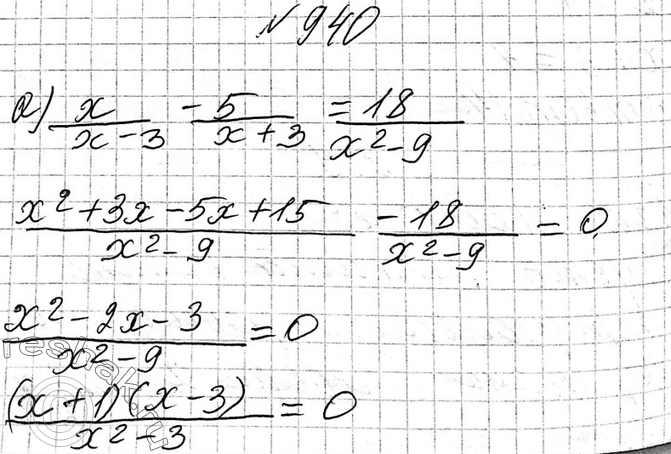 №940
a) x/(x-3) - 5/(x+3) = 18/(x²-9)
(x²+3x-5x+15)/(x²-9) - 18/(x²-9) = 0
(x²-2x-3)/(x²-9) = 0
((x+1)(x-3))/(x²-3) = 0
reshak.ru